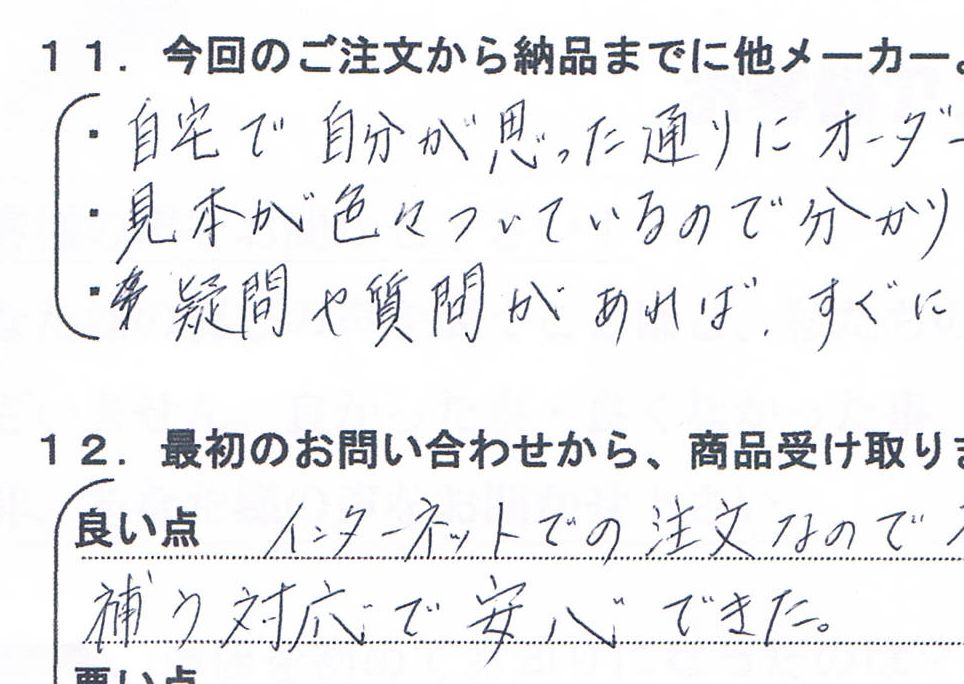 11．今回のご注文から納品までに他メーカー
・自宅で自分が思った通りにオーダー
・見本が色々ついているので分かり
・疑問や質問があれば、すぐに
12．最初のお問い合わせから、商品受け取りま
良い点 インターネットでの注文なので
補う対応で安心できた。
悪い点